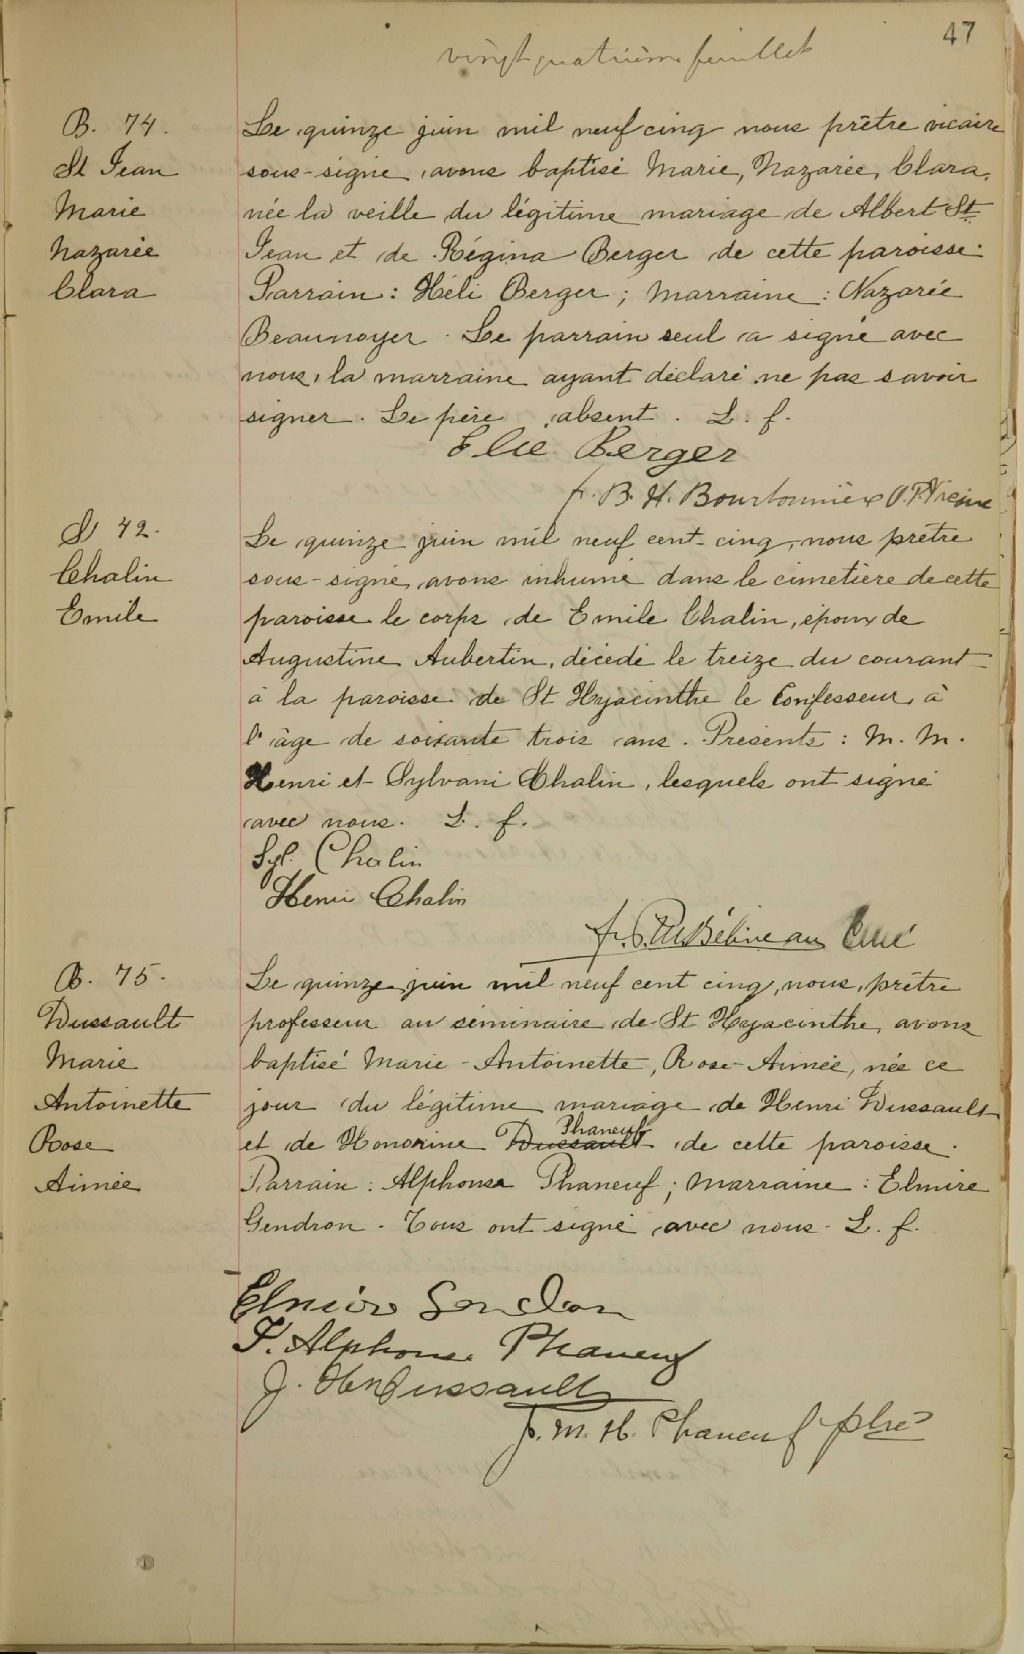 47
vingt quatrième feuillet
B. 74.
St Jean
Marie
Nazarée
Clara
Le quinze juin mil neuf cinq nous prêtre vicaire
sous-signé, avons baptisé Marie, Nazarée, Clara,
née la veille du légitime mariage de Albert St.
Jean et de Régina Berger de cette paroisse.
Parrain : Héli Berger ; Marraine : Nazarée
Beaunoyer. Le parrain seul a signé avec
nous, la marraine ayant déclaré ne pas savoir
signer. Le père absent. L. f.
Elie Berger
fr. B. H. Bourbonnière O.P. Vicaire
S 42.
Chalin
Emile
Le quinze juin mil neuf cent-cinq, nous prêtre
sous-signé, avons inhumé dans le cimetière de cette
paroisse le corps de Emile Chalin, époux de
Augustine Aubertin, décédé le treize du courant
à la paroisse de St Hyacinthe le Confesseur, à
l'âge de soixante trois ans. Présents : M. M.
Henri et Sylvani Chalin, lesquels ont signé
avec nous. L. f.
Syl. Chalin
Henri Chalin
Béliveau Curé
B. 75.
Dussault
Marie
Antoinette
Rose
Aimée
Le quinze juin mil neuf cent cinq, nous, prêtre
professeur au séminaire de St Hyacinthe, avons
baptisé Marie-Antoinette, Rose-Aimée, née ce
jour du légitime mariage de Henri Dussault
Phaneuf
et de Honorine Dussault de cette paroisse.
Parrain : Alphonse Phaneuf ; Marraine : Elmire
Gendron. Tous ont signé avec nous. L. f.
Elmire Gendron
F. Alphonse Phaneuf
J. Hri Dussault
J. M. H. Phaneuf ptre